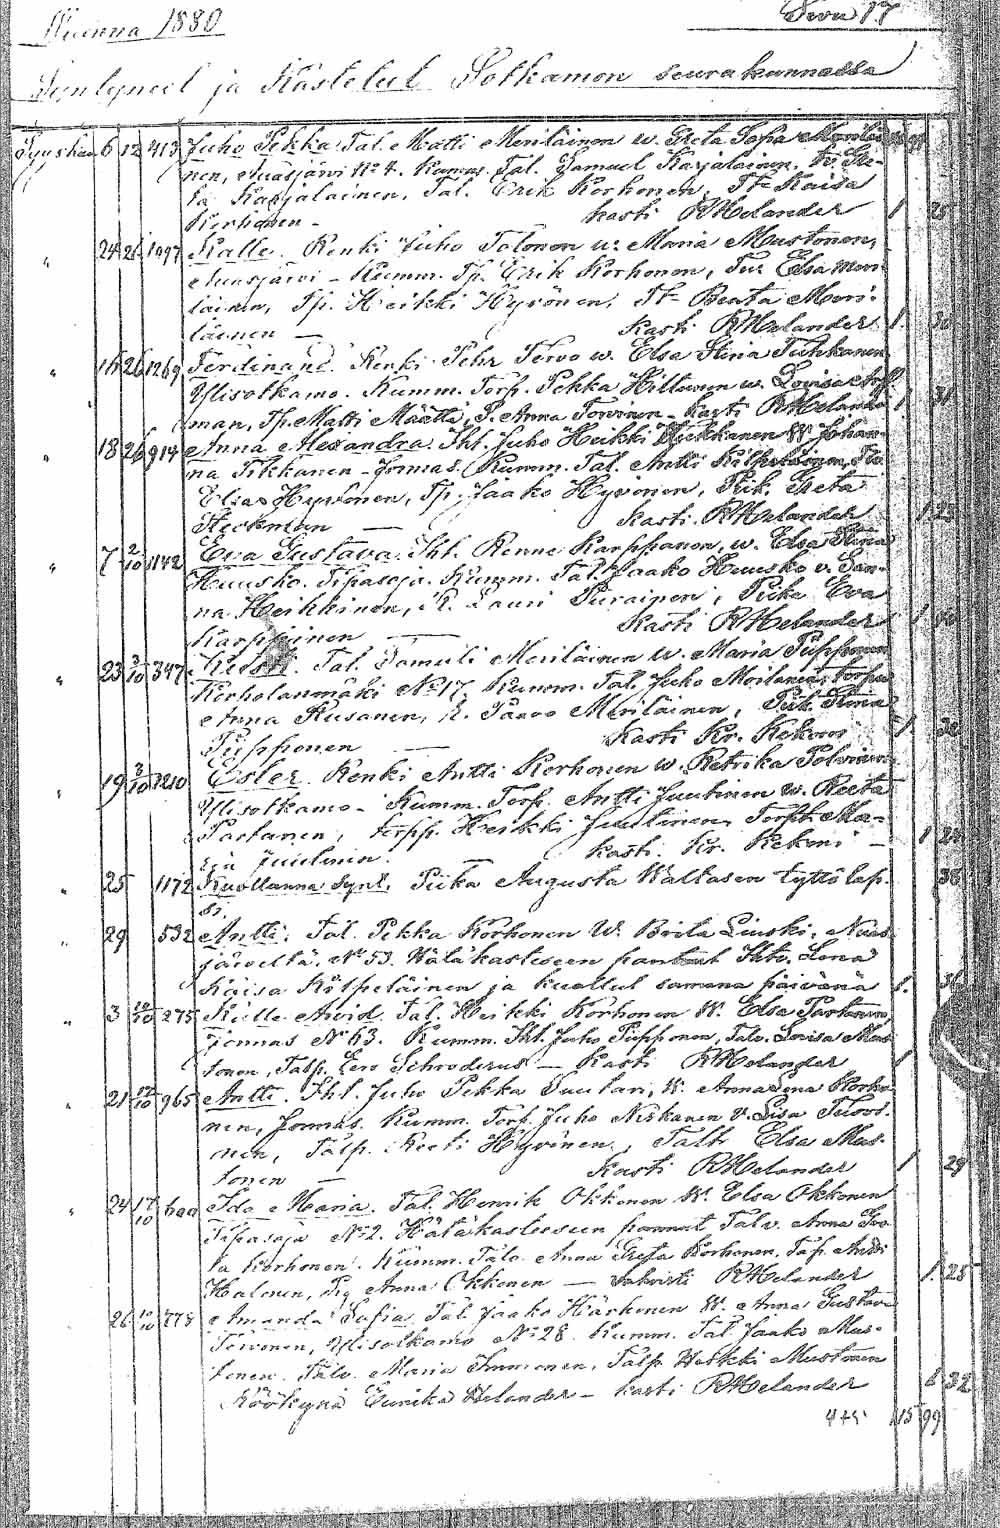 Wuonna 1880 Sivu 17
Syntyneet ja Kastetut Sotkamon seurakunnassa
Syyskuu 6 12 413 Juho Pekka. Tal. Matti Meriläinen w. Greta Sofia
nen, Nuasjärvi No 4. Kumm. Tal. Samuel Karjalainen, tv. Gre-
ta Karjalainen, Tal. Erik Korhonen, Tt= Kaisa
Korhonen - kasti RHelander 1 25
" 24 26 1097 Kalle. Renki Juho Tolonen w. Maria Mustonen,
Nuasjärvi - Kumm. Tp. Erik Korhonen, Tv. Elsa Meri-
läinen, Tp. Heikki Hyvönen, Tt= Beata Meri-
läinen - Kasti RHelander 1. 36
" 16 26 1269 Ferdinand. Renki Pehr Tervo w. Elsa Stina Tuhkanen
Ylisotkamo. Kumm. Torp. Pekka Hiltunen w. Lovisa
man, Tp. Matti Määttä, P. Anna Torvonen - kasti RHelander 1 31
" 18 26 914 Anna Alexandra. Ihl. Juho Heikki W. Johan-
na Tikkanen - Jormas. Kumm. Tal. Antti
Elsa Hyvönen, Tp. Jaako Hyvönen, Piik. Greta
Steckman - Kasti RHelander 1 23
" 7 2/10 1142 Eva Gustava. Ihl. Renne Karppanen, w. Elsa Stina
Huusko. Tipasoja. Kumm. Tal. Jaako Huusko v. San-
na Heikkinen, R. Lauri Piirainen, Piika Eva
Karppinen - Kasti RHelander 1 40
" 23 3/10 347 Tal. Tomuli Meriläinen w. Maria Piipponen
Korholanmäki No 17. Kumm. Tal. Juho Moilanen,
Anna Rusanen, R. Paavo Meriläinen, Piik. Stina
Piipponen - Kasti Kr. Kekoni 1. 32
" 19 3/10 1210 Ester. Renki Antti Korhonen w. Retrika Polvinen
Ylisotkamo - Kumm. Torp. Antti Juutinen w. Reeta
Partanen, torpp. Heikki Juutinen, Torpt. Mar-
ija Juutinen. - kasti. Kr. Kekoni - 1 24
" 25 1172 Kuollunna synt. Piika Augusta Waltasen tyttölap-
si. 38
" 29 532 Antti. Tal. Pekka Korhonen W. Brita Liuski, Nuas-
järveltä. No 53. Hätäkasteseen pantut Ihtv. Lena
Kaisa Kilpeläinen ja kuollut samana päivänä 1. 36
" 3 10/10 275 Kalle Arvid. Tal. Heikki Korhonen W. Elsa Partanen,
Jormas No 63. Kumm. Ihl. Juho Piipponen, Talv. Lovisa Mus-
tonen, Talp. Eero Schroderus - Kasti RHelander 1
" 21 17/10 965 Antti. Ihl. Juho Pekka Suutari, W. Anna Lena Korho-
nen, Jormas. Kumm. Torp. Juho Niskanen v. Lisa
nen, Talp. Reeti Hyvönen, Talt Elsa Mus-
tonen - Kasti RHelander 1 29
" 24 17/10 600 Ida Maria. Tal. Henrik Okkonen W. Elsa Okkonen
Tipasoja No 2. Hätäkasteeseen pannut Talv. Anna Gre-
ta Korhonen. Kumm. Talv. Anna Greta Korhonen, Talp. Antti
Halonen, Pig. Anna Okkonen - vahvisti RHelander 1. 25
26 10/10 778 Amanda Sofia. Tal. Jaako Härkönen W. Anna Gustava
Toivonen, Ylisotkamo No 28. Kumm. Tal. Jaako Mus-
tonen. Talv. Maria Immonen, Talp. Heikki Mustonen
Röökynä Eunika Helander - kasti RHelander 1 32
4+5 15 99